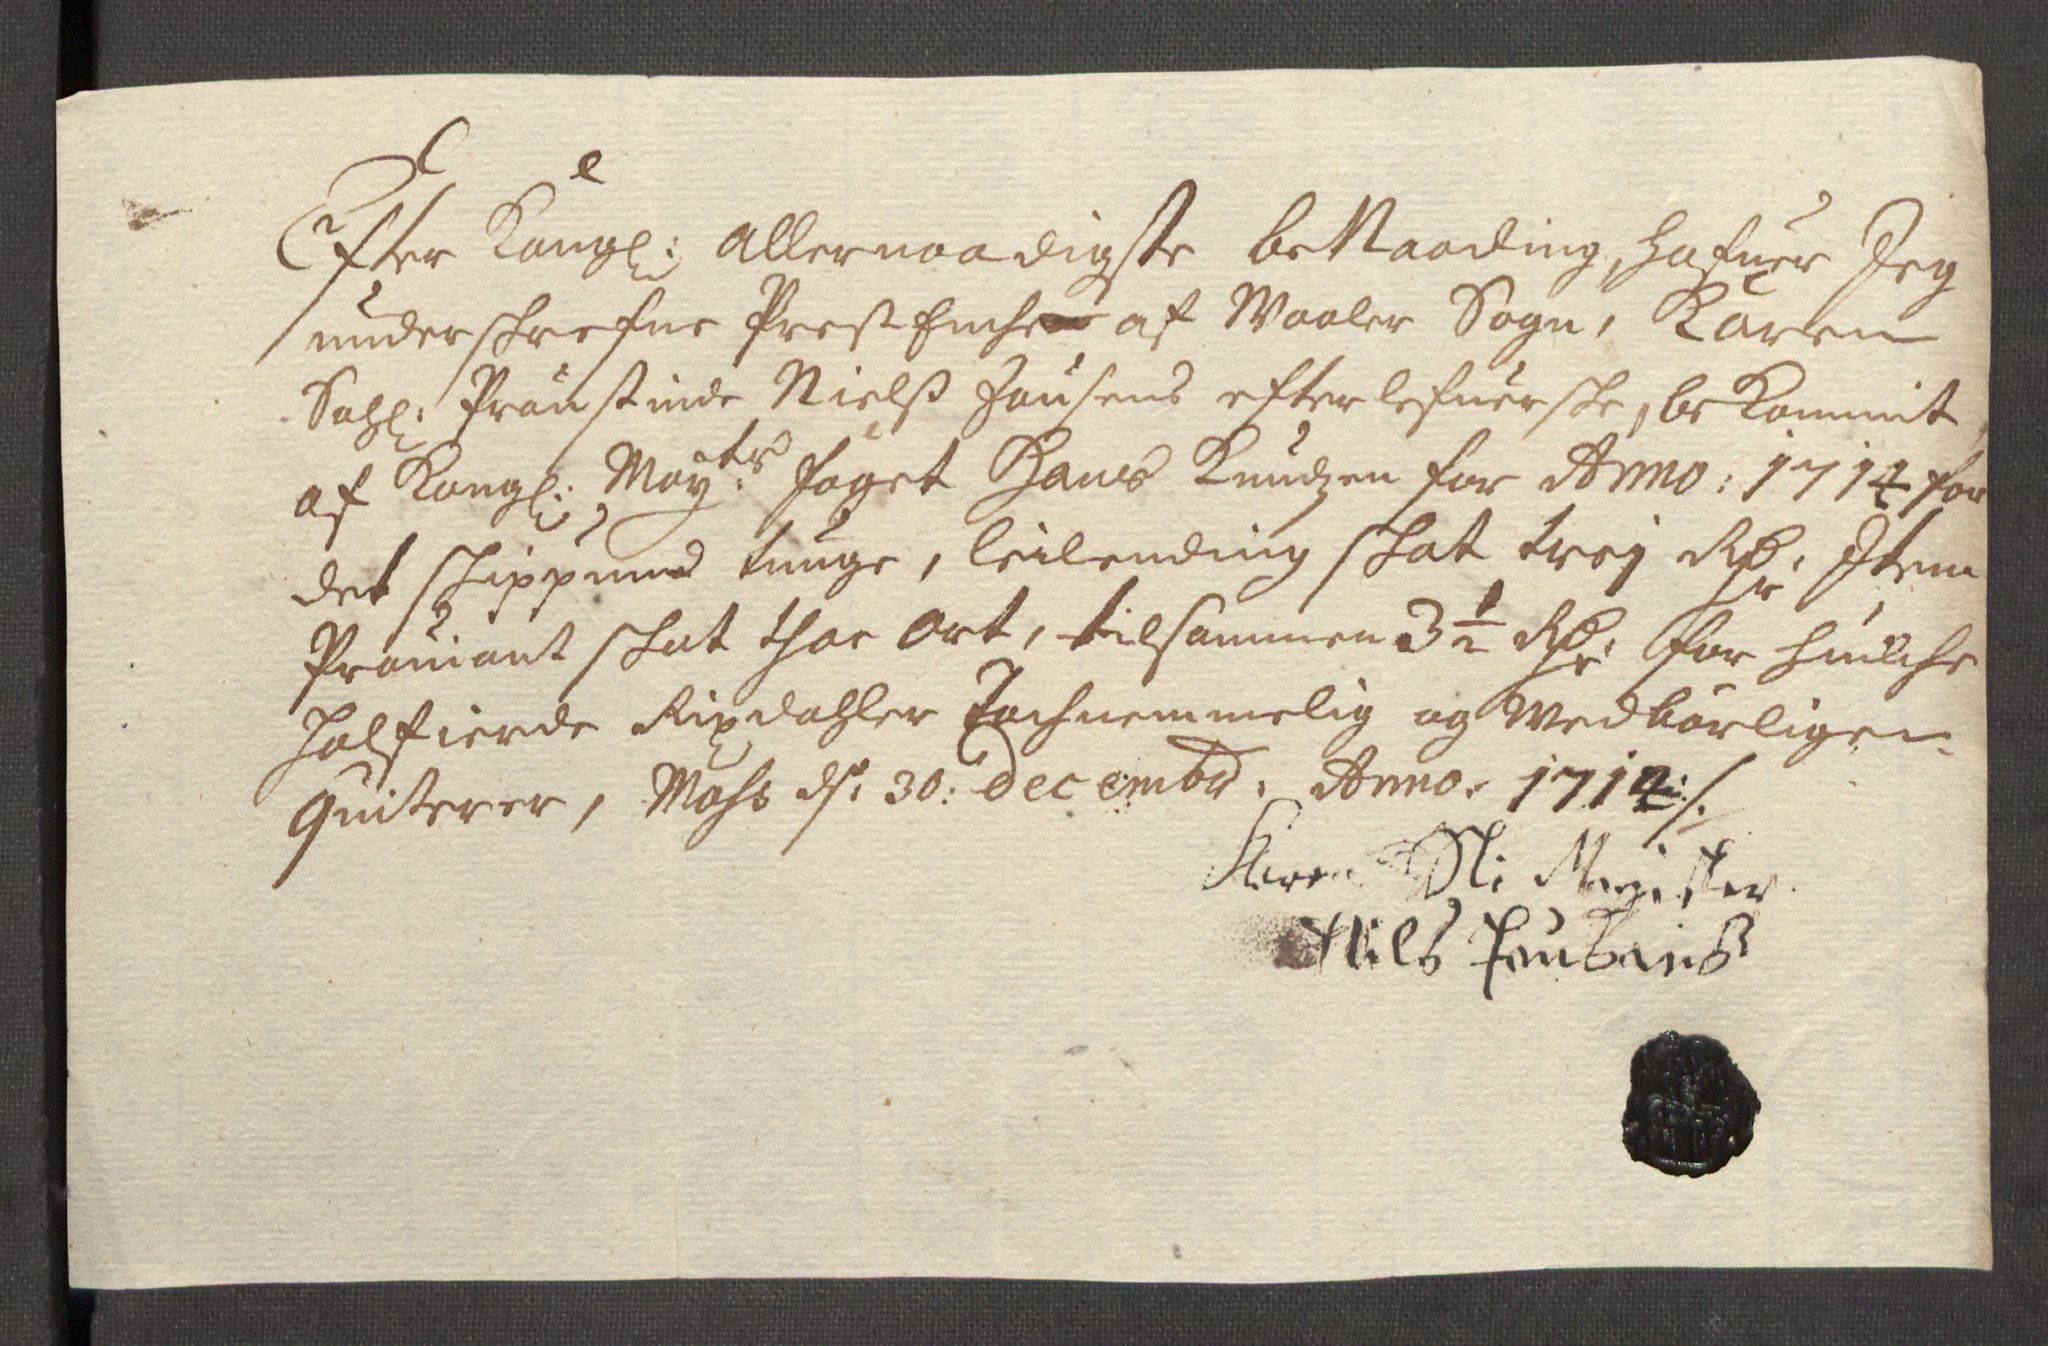 Efter Kongl: allernaadigste beNaading, hafuer Jeg
underschrefne Prest Enche af Waaler Sogn, Karen
Sahl: Proust inde Nielß Jensens efterlefuerske, be Kommit
af Kongl: Maytz: foget Hans Knudzen for Anno: 1714 for
det schippund tunge, leilending schat trej Rdr: Item
Prouiant schat thoe Ort, tilsammen 3 1/2 Rdr: for huilche
halfierde Rixdahler Tachnemmelig og Wedbörligen
quiterer, Mohs ds: 30: decembr: Anno: 1714:/.
Karen Sli Magister
Nils Jensens